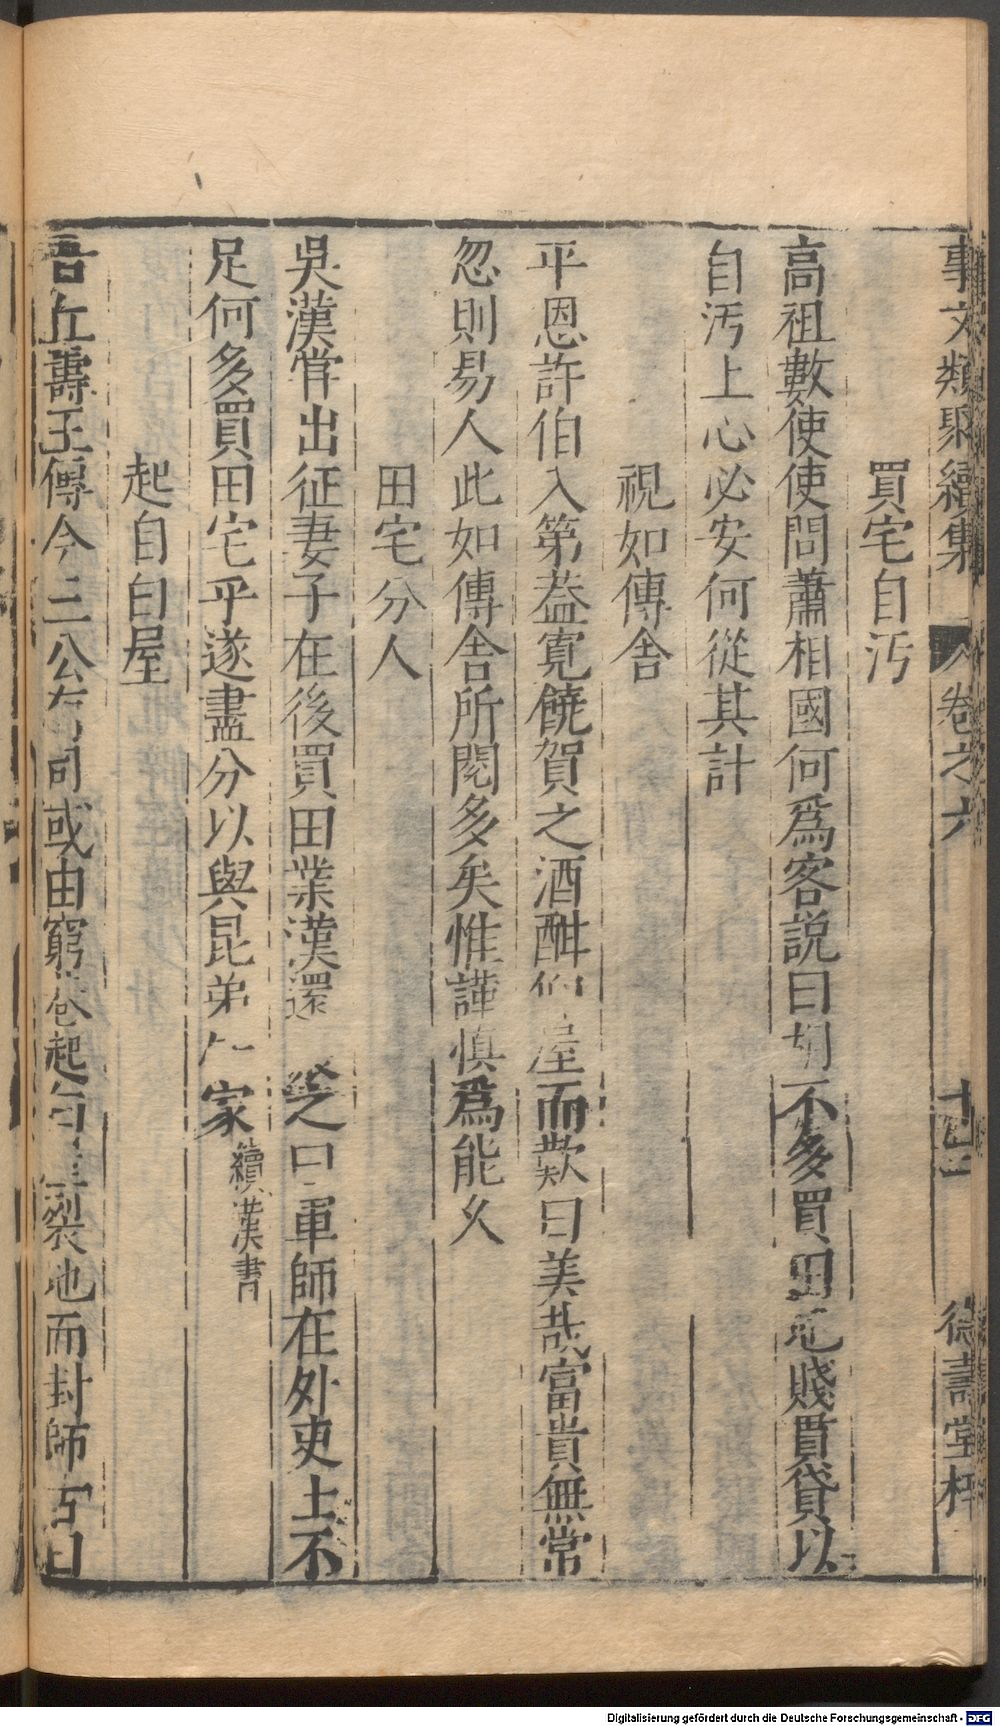 事文類聚續集 卷之六 十三 德壽堂梓
買宅自汚
高祖數使使問蕭相國何爲客説曰胡不多買田地賤貰貸以
自汚上心必安何從其計
視如傳舍
平恩許伯入第葢寬饒賀之酒酣仰屋而歎曰美哉富貴無常
忽則易人此如傳舍所閱多矣惟謹慎爲能乆
田宅分人
吳漢甞出征妻子在後買田業漢還 之曰軍師在外吏士不
足何多買田宅乎遂盡分以與昆弟 家續漢書
起自白屋
吾丘壽王傳今三公有司或由窮巷起白屋裂地而封師古曰
Digitalisierung gefördert durch die Deutsche Forschungsgemeinschaft - DFG